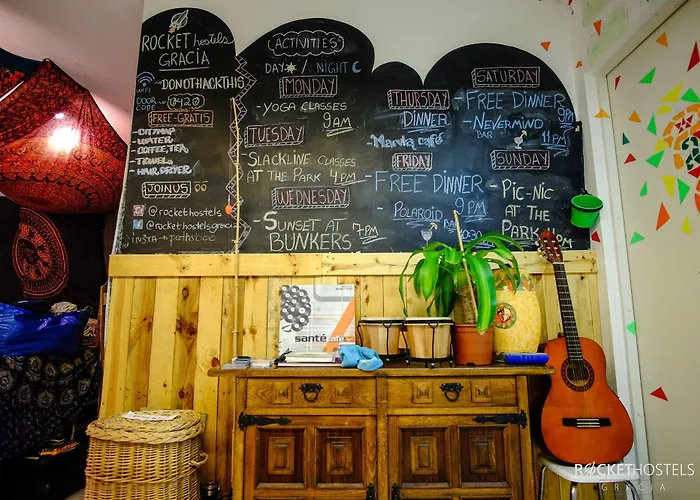 ROCKET hostels
GRACIA
WIFI
DONOTHACKTHIS
DOOR CODE
0420
FREE-GRATIS
- CITYMAP
- WATER
- COFFEE, TEA,
- TOWELS
- HAIR, DRYER
JOIN US
@rockethostels
@rockethostelsgracia
INSTA
ACTIVITIES
DAY / NIGHT
MONDAY
- YOGA CLASSES
9AM
TUESDAY
- SLACKLINE CLASSES
AT THE PARK 4PM
WEDNESDAY
- SUNSET AT
BUNKERS 7PM
THURSDAY
DINNER
Manila café
FRIDAY
- FREE DINNER
9PM
- POLAROID
BAR
SATURDAY
- FREE DINNER 9PM
- NEVERMIND
BAR 11PM
SUNDAY
- PIC-NIC
AT THE
PARK
santé café
ROCKETHOSTELS
GRACIA